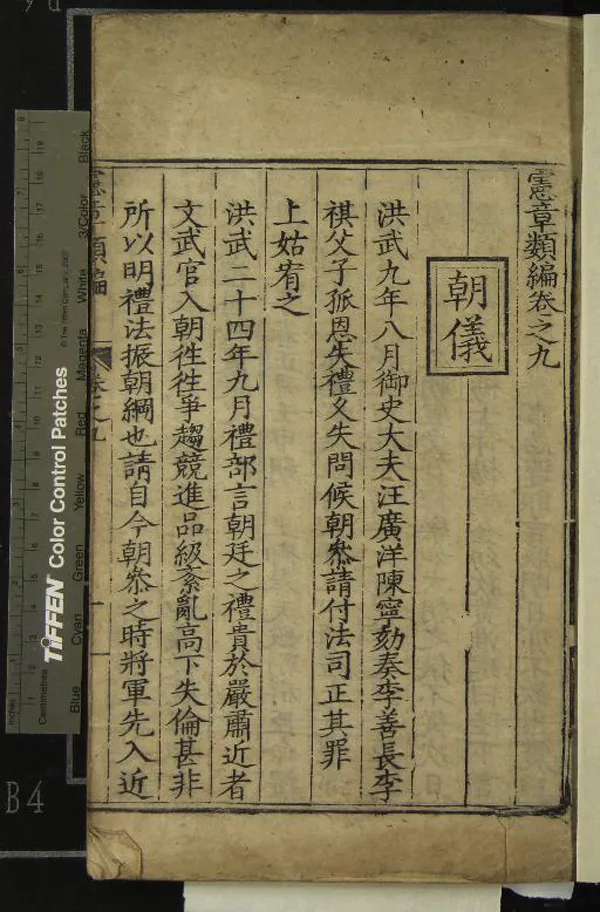 憲章類編卷之九
朝儀
洪武九年八月御史大夫汪廣洋陳寧劾奏李善長李
祺父子孤恩失禮久失問候朝叅請付法司正其罪
上姑宥之
洪武二十四年九月禮部言朝廷之禮貴於嚴肅近者
文武官入朝徃徃爭趨競進品級紊亂高下失倫甚非
所以明禮法振朝綱也請自今朝叅之時將軍先入近
憲章類編 卷之九 一
Inches
Centimetres
TIFFEN Color Control Patches
© The Tiffen Company, 2007
Blue Cyan Green Yellow Red Magenta White 3/Color Black
B4